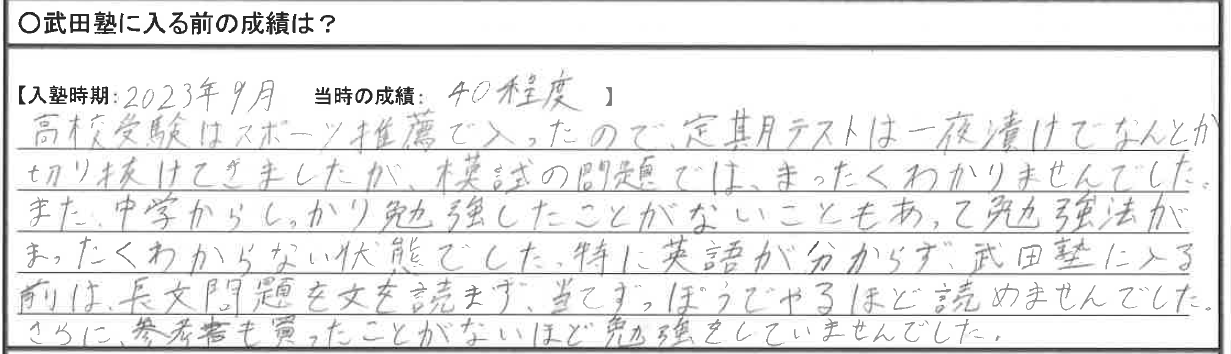 ○武田塾に入る前の成績は？
【入塾時期:2023年9月 当時の成績: 40程度 】
高校受験はスポーツ推薦で入ったので、定期テストは一夜漬けでなんとか
切り抜けてきましたが、模試の問題では、まったくわかりませんでした。
また、中学からしっかり勉強したことがないこともあって勉強法が
まったくわからない状態でした。特に英語が分からず、武田塾に入る
前は、長文問題を文を読まず、当てずっぽうでやるほど読めませんでした。
さらに、参考書も買ったことがないほど勉強をしていませんでした。